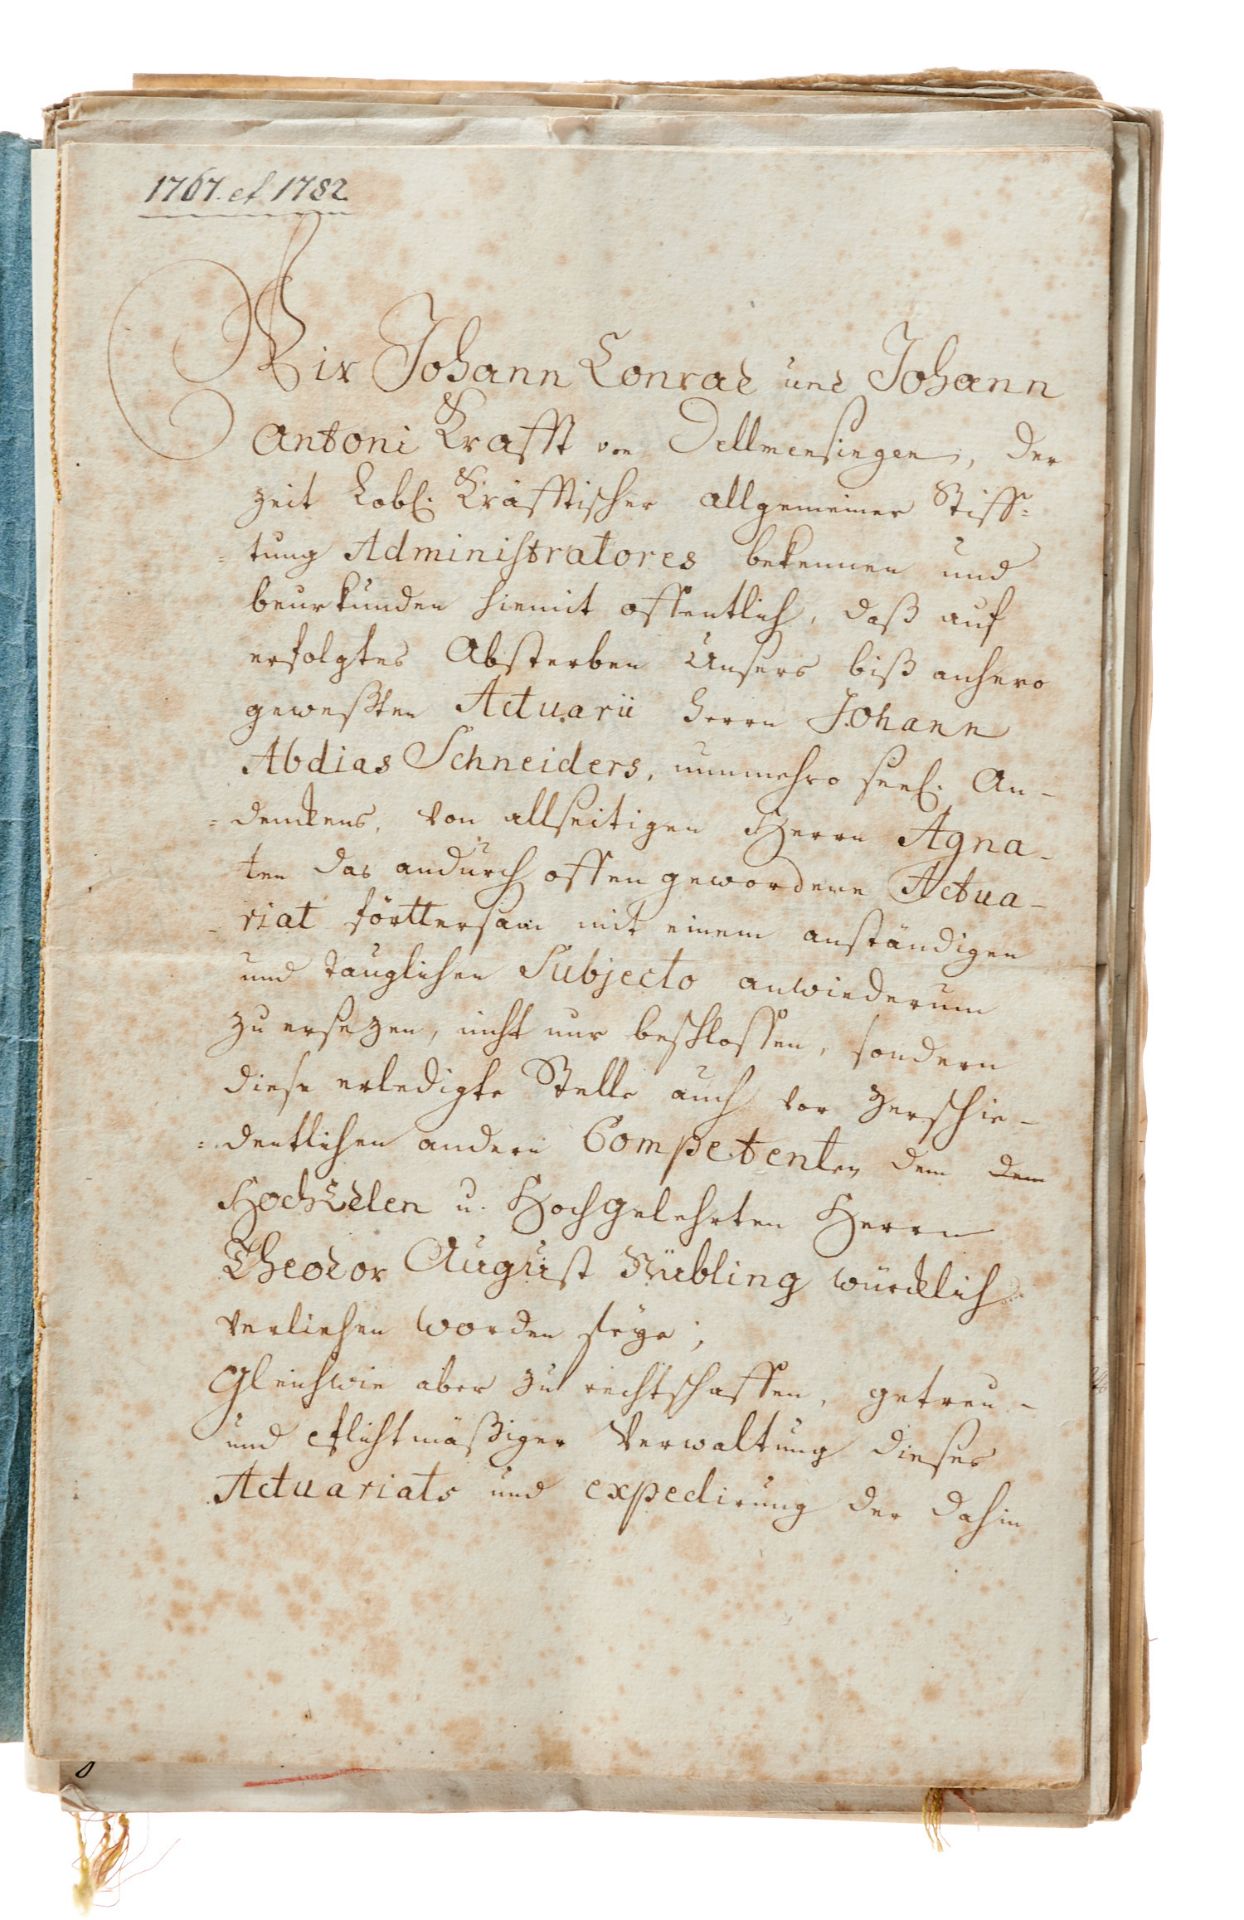 1767. et 1782.
Wir Johann Conrad und Johann
Antoni Krafft von Dellmensingen, der
zeit Löbl. Krafftischer allgemeiner Stiff-
=tung Administratores bekennen und
beurkunden hiemit offentlich, daß auf
erfolgtes Absterben Unsers biß anhero
geweßten Actuarii Herrn Johann
Abdias Schneiders, nunmehro seel. An-
=denckens, von allseitigen Herrn Agna-
ten das andurch offen gewordene Actua-
-riat förttersam mit einem anständigen
und tauglichen Subjecto anwiederum
zu ersezen, nicht nur beschlossen, sondern
diese erledigte Stelle auch vor zerschie-
=dentlichen andern Competenten dem dem
HochEdlen u. Hochgelehrten Herrn
Theodor August Nübling würcklich
verliehen worden seye;
Gleichwie aber zu rechtschaffen, getreu-
und pflichtmäßiger Verwaltung dieses
Actuariats und expedirung der dahin